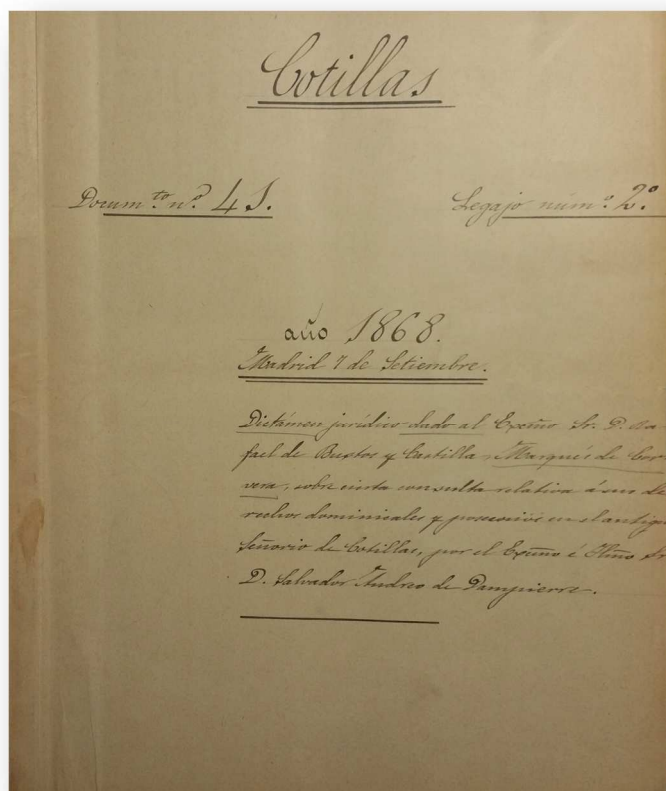 Cotillas
Docum.to n.o 41.
Legajo núm.o 2.o
año 1868.
Madrid 7 de Setiembre.
Dictámen jurídico dado al Excmo Sr. D. Ra-
fael de Bustos y Castilla, Marqués de Cor-
vera, sobre cierta consulta relativa á sus de
rechos dominicales y posesorios en el antiguo
Señorio de Cotillas, por el Excmo é Iltmo Sr
D. Salvador Andreo de Dampierre.